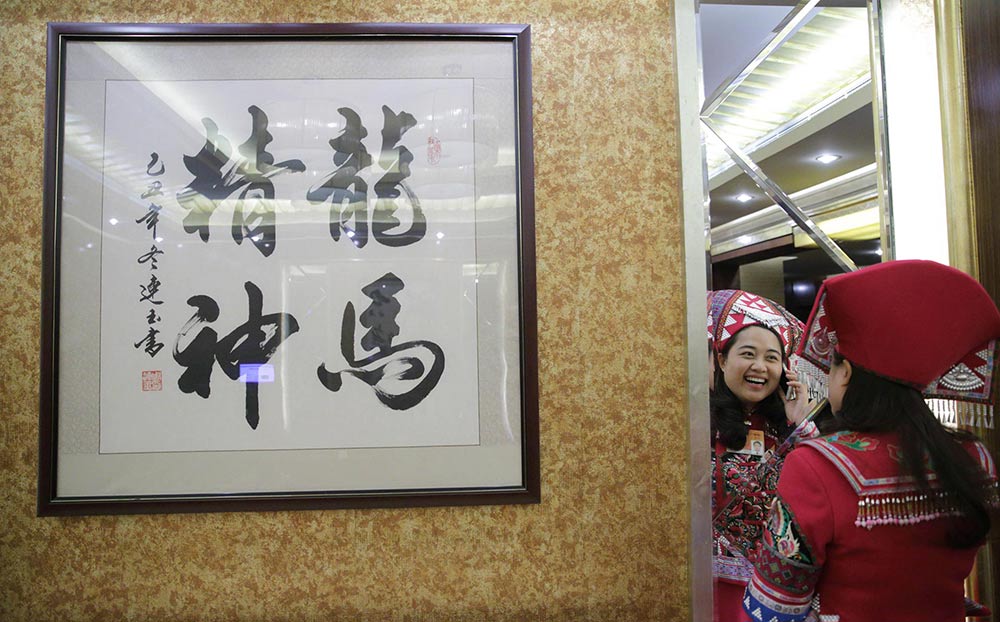 龍馬
精神
乙丑年冬達玉書